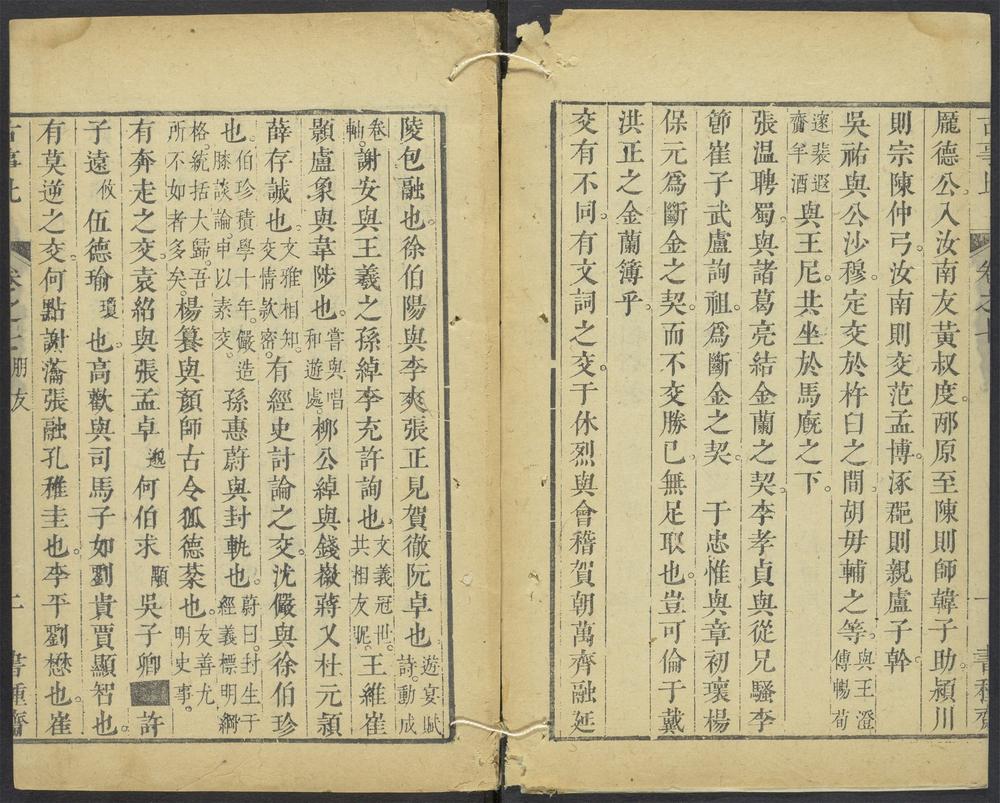 卷之十 一 書種齋
龐德公入汝南友黃叔度。邴原至陳則師韓子助。潁川
則宗陳仲弓。汝南則交范孟博。涿郡則親盧子幹。
吳祐與公沙穆。定交於杵臼之間。胡毋輔之等。與王澄傅暢荀
邃裴遐齎羊酒與王尼。共坐於馬廐之下。
張温聘蜀。與諸葛亮結金蘭之契。李孝貞與從兄騷李
節崔子武盧詢祖。爲斷金之契。　于忠惟與章初瓌楊
保元爲斷金之契。而不交勝已。無足取也。豈可倫于戴
洪正之金蘭簿乎。
交有不同。有文詞之交。于休烈與會稽賀朝萬齊融延
陵包融也。徐伯陽與李爽張正見賀徹阮卓也。遊宴賦詩。動成
卷軸。謝安與王羲之孫綽李充許詢也。文義冠世。共相友昵。王維崔
顥盧象與韋陟也。嘗與唱和遊處。柳公綽與錢徽蔣乂杜元頴
薛存誠也。文雅相知。交情欵密。有經史討論之交。沈儼與徐伯珍
也。伯珍積學十年。儼造膝談論。申以素交。孫惠蔚與封軌也。蔚曰。封生于經義標明綱
格。統括大歸。吾所不如者多矣。楊纂與顏師古令狐德棻也。友善尤明史事。
有奔走之交。袁紹與張孟卓邈何伯求顒吳子卿許
子遠攸伍德瑜瓊也。高歡與司馬子如劉貴賈顯智也。
有莫逆之交。何點謝瀹張融孔稚圭也。李平劉懋也。崔
古事比 卷之十 朋友 二 書種齋